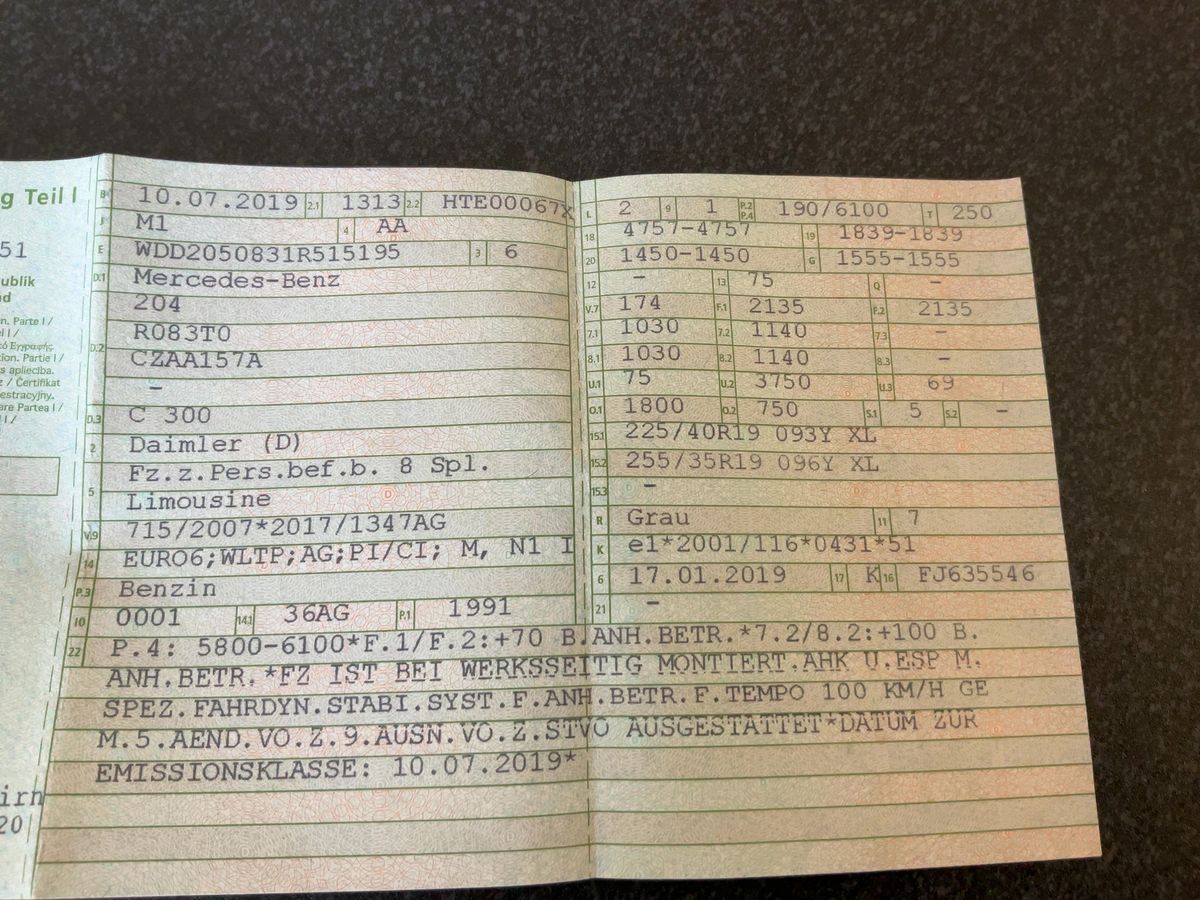 g Teil I
51
ublik
nd
n. Parte I /
el I /
ό Εγγραφής.
tion. Partie I /
s apliecība.
z / Čertifikat
estracyjny.
are Partea I /
I /
irn
20
B 10.07.2019 2.1 1313 2.2 HTE00067X
J M1 4 AA
E WDD2050831R515195 3 6
D.1 Mercedes-Benz
204
R083T0
D.2 CZAA157A
–
D.3 C 300
2 Daimler (D)
Fz.z.Pers.bef.b. 8 Spl.
5 Limousine
V.9 715/2007*2017/1347AG
14 EURO6;WLTP;AG;PI/CI; M, N1 I
P.3 Benzin
10 0001 14.1 36AG P.1 1991
L 2 9 1 P.2 P.4 190/6100 T 250
18 4757-4757 19 1839-1839
20 1450-1450 G 1555-1555
12 – 13 75 Q –
V.7 174 F.1 2135 F.2 2135
7.1 1030 7.2 1140 7.3 –
8.1 1030 8.2 1140 8.3 –
U.1 75 U.2 3750 U.3 69
O.1 1800 O.2 750 S.1 5 S.2 –
15.1 225/40R19 093Y XL
15.2 255/35R19 096Y XL
15.3 –
R Grau 11 7
K e1*2001/116*0431*51
6 17.01.2019 17 K 16 FJ635546
21 –
22 P.4: 5800-6100*F.1/F.2:+70 B.ANH.BETR.*7.2/8.2:+100 B.
ANH.BETR.*FZ IST BEI WERKSSEITIG MONTIERT.AHK U.ESP M.
SPEZ.FAHRDYN.STABI.SYST.F.ANH.BETR.F.TEMPO 100 KM/H GE
M.5.AEND.VO.Z.9.AUSN.VO.Z.STVO AUSGESTATTET*DATUM ZUR
EMISSIONSKLASSE: 10.07.2019*